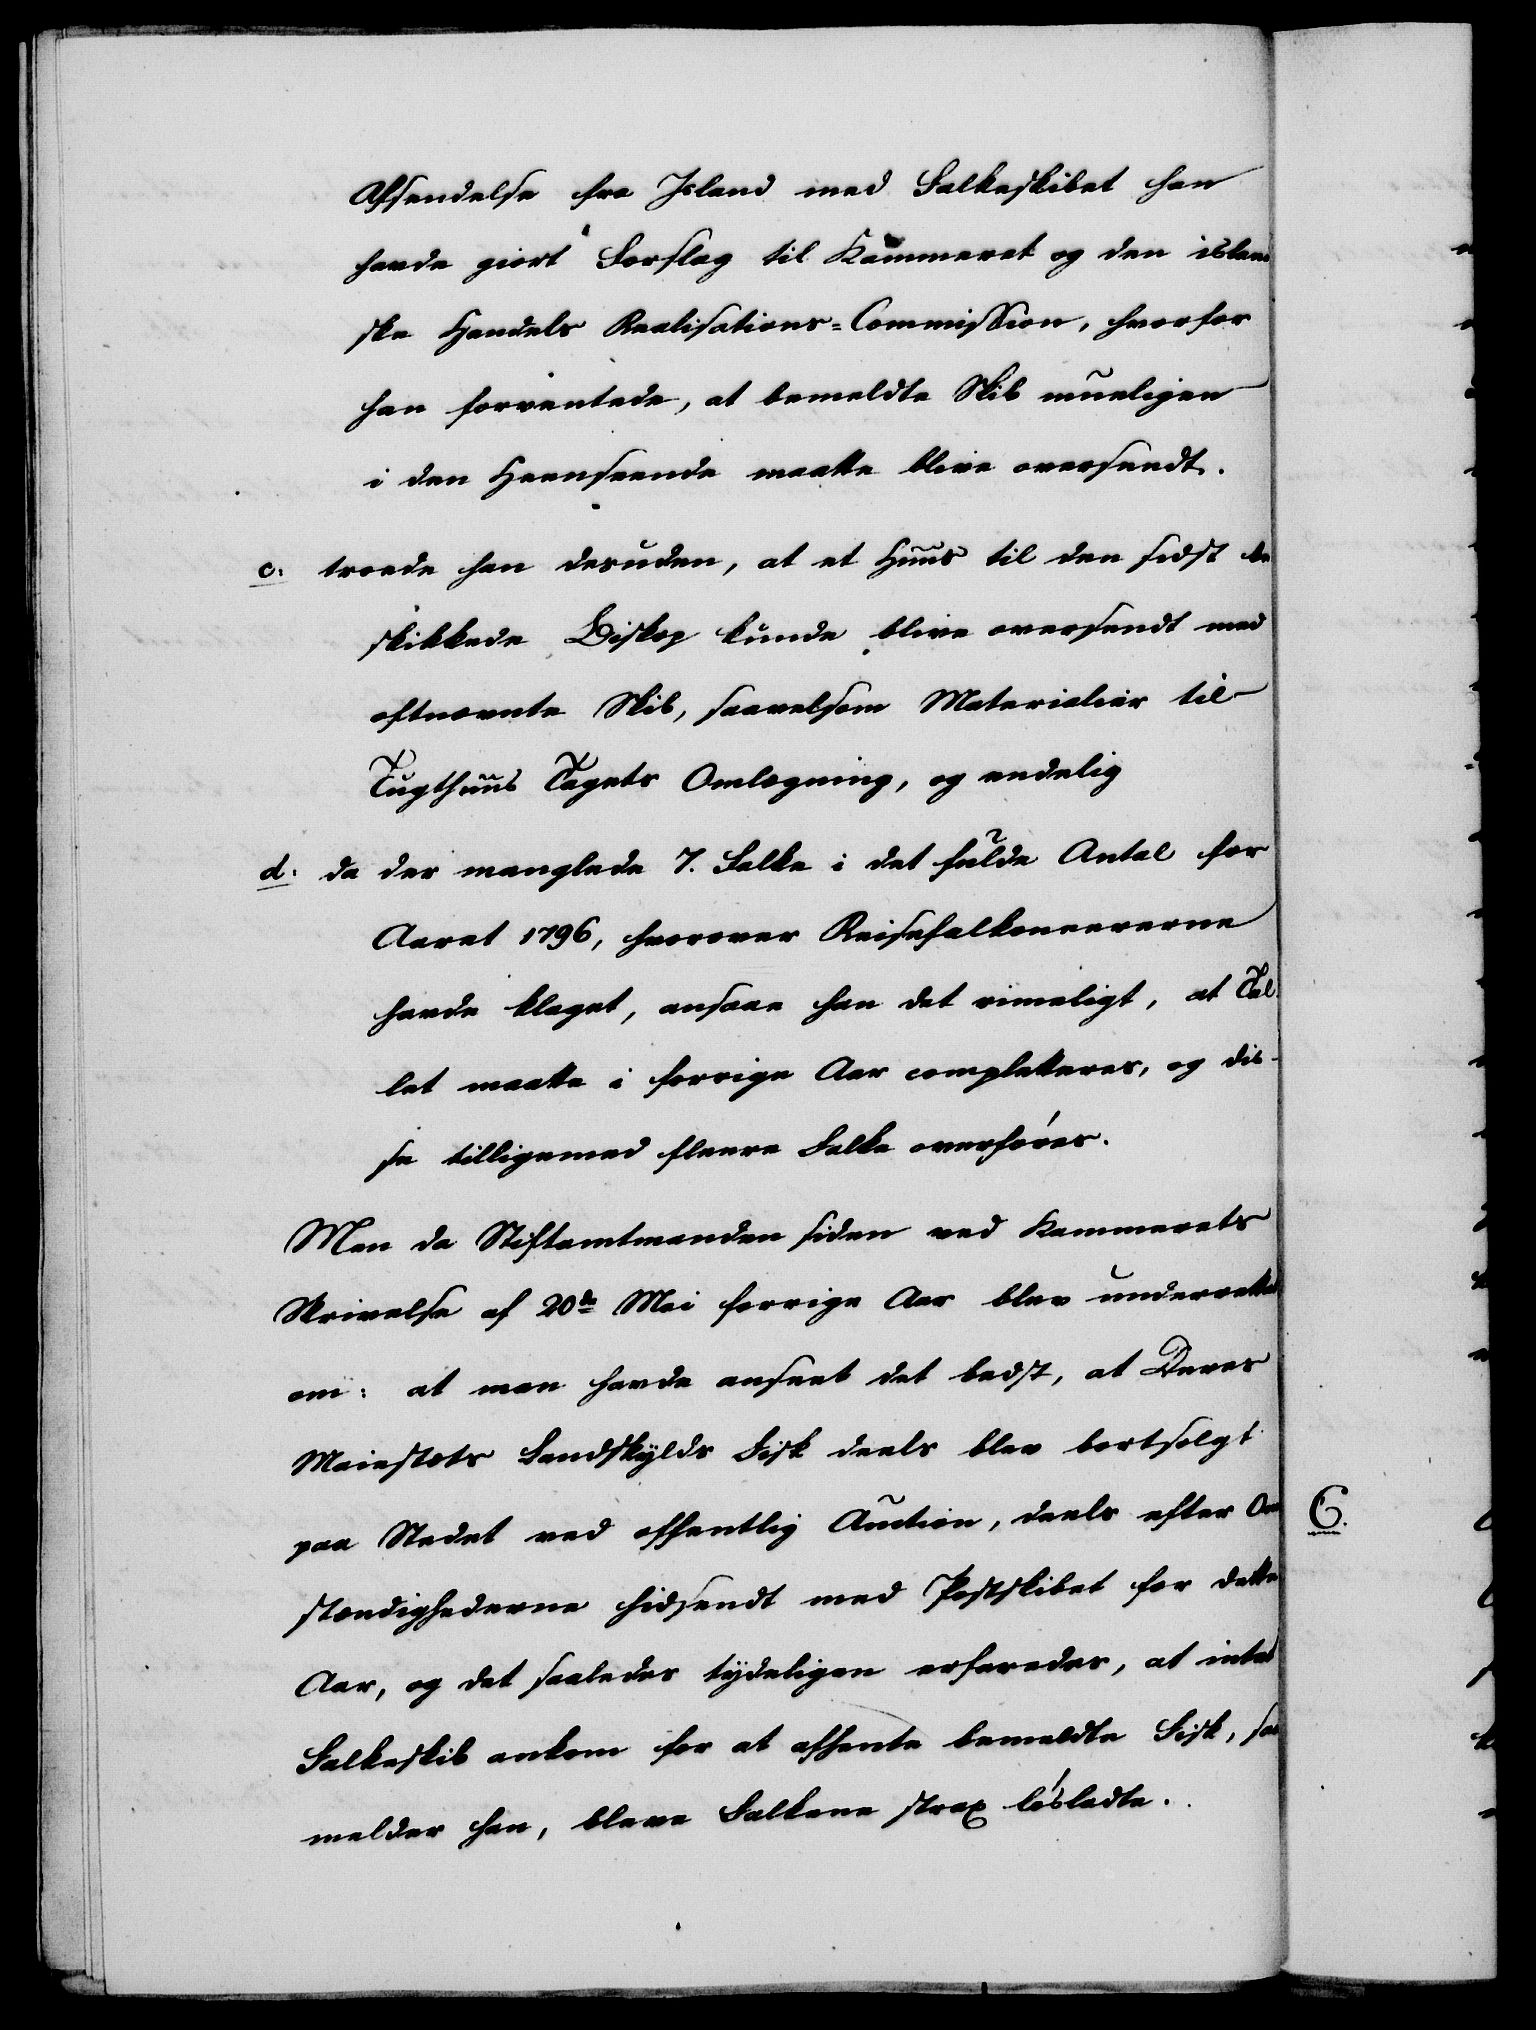 Afsendelse fra Island med Falkeskibet han
havde giort Forslag til Kammeret og den islan
ske Handels Realisations=Commission, hvorfor
han forventede, at bemeldte Skib mueligen
i den Henseende maatte blive oversendt.
c. troede han desuden, at et Huus til den sidst be
skikkede Biskop kunde blive oversendt med
oftnævnte Skib, saavelsom Materialier til
Tugthuus Tagets Omlægning, og endelig
d. da der manglede 7. Falke i det fulde Antal for
Aaret 1796, hvorover Reisefalkoneererne
havde klaget, ansaae han det rimeligt, at Tal
let maatte i forrige Aar completteres, og dis-
se tilligemed fleere Falke overføres.
Men da Stiftamtmanden siden ved Kammerets
Skrivelse af 20de Mai forrige Aar blev underrettet
om: at man havde anseet det bedst, at Deres
Maiestæts Landskylds Fisk deels blev bortsolgt
paa Stedet ved offentlig Auction, deels efter Om
stændighederne hidsendt med Postskibet for dette
Aar, og det saaledes tydeligen erfaredes, at intet
Falkeskib ankom for at afhente bemeldte Fisk, saa
melder han, bleve Falkene strax løsladte.
C.